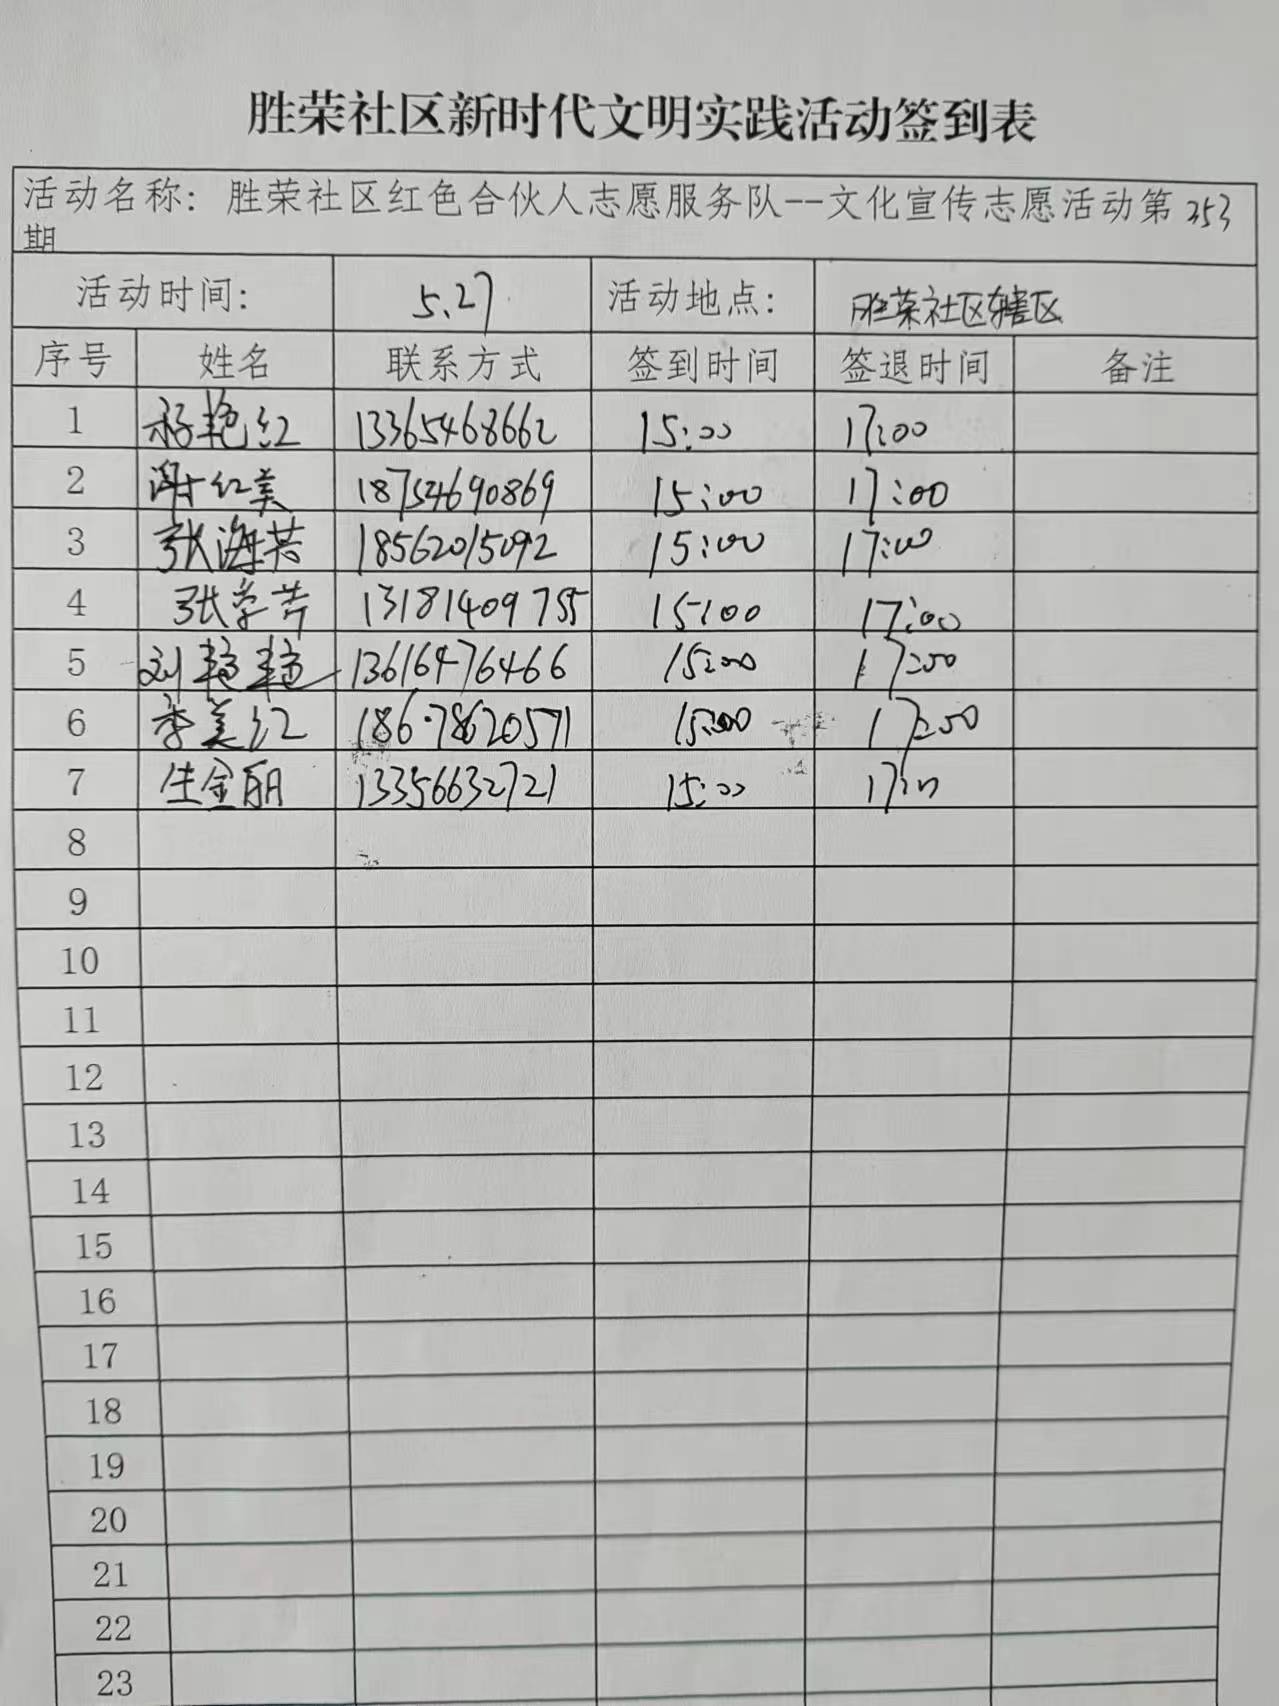 胜荣社区新时代文明实践活动签到表
活动名称：胜荣社区红色合伙人志愿服务队--文化宣传志愿活动第253
期
活动时间： 5.27 活动地点： 胜荣社区辖区
序号 姓名 联系方式 签到时间 签退时间 备注
1 杨艳红 13365468662 15:00 17:00
2 谢红美 18754690869 15:00 17:00
3 张海芸 18562015092 15:00 17:00
4 张 13181409755 15:00 17:00
5 刘艳艳 13616476466 15:00 17:00
6 李美红 15:00 17:00
7 生金丽 13356632721 15:00 17:00
8
9
10
11
12
13
14
15
16
17
18
19
20
21
22
23